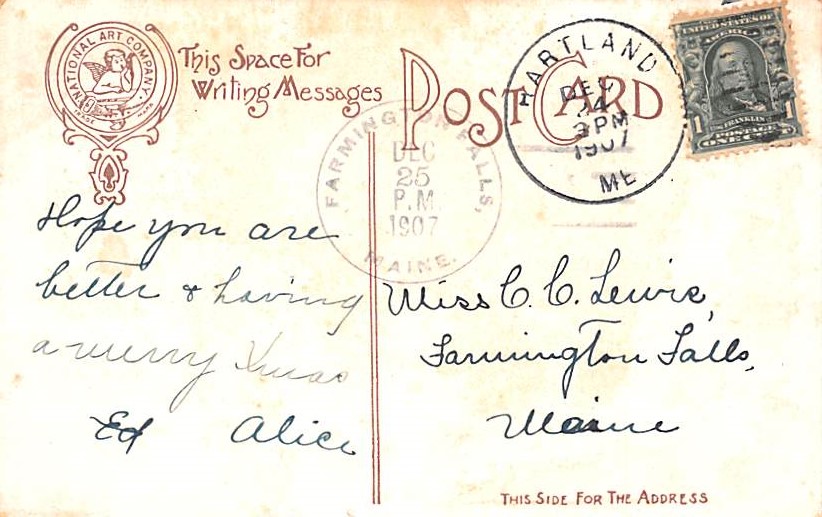 INTERNATIONAL ART COMPANY
TRADE MARK
This Space For
Writing Messages
POST CARD
FARMINGTON FALLS,
DEC
25
P.M.
1907
MAINE.
HARTLAND
DEC
24
3 PM
1907
ME
UNITED STATES OF
AMERICA
FRANKLIN
1 1
POSTAGE
ONE CENT
Hope you are
better & having
a merry Xmas
Ed Alice
Miss C. C. Lewis,
Farmington Falls,
Maine
THIS SIDE FOR THE ADDRESS